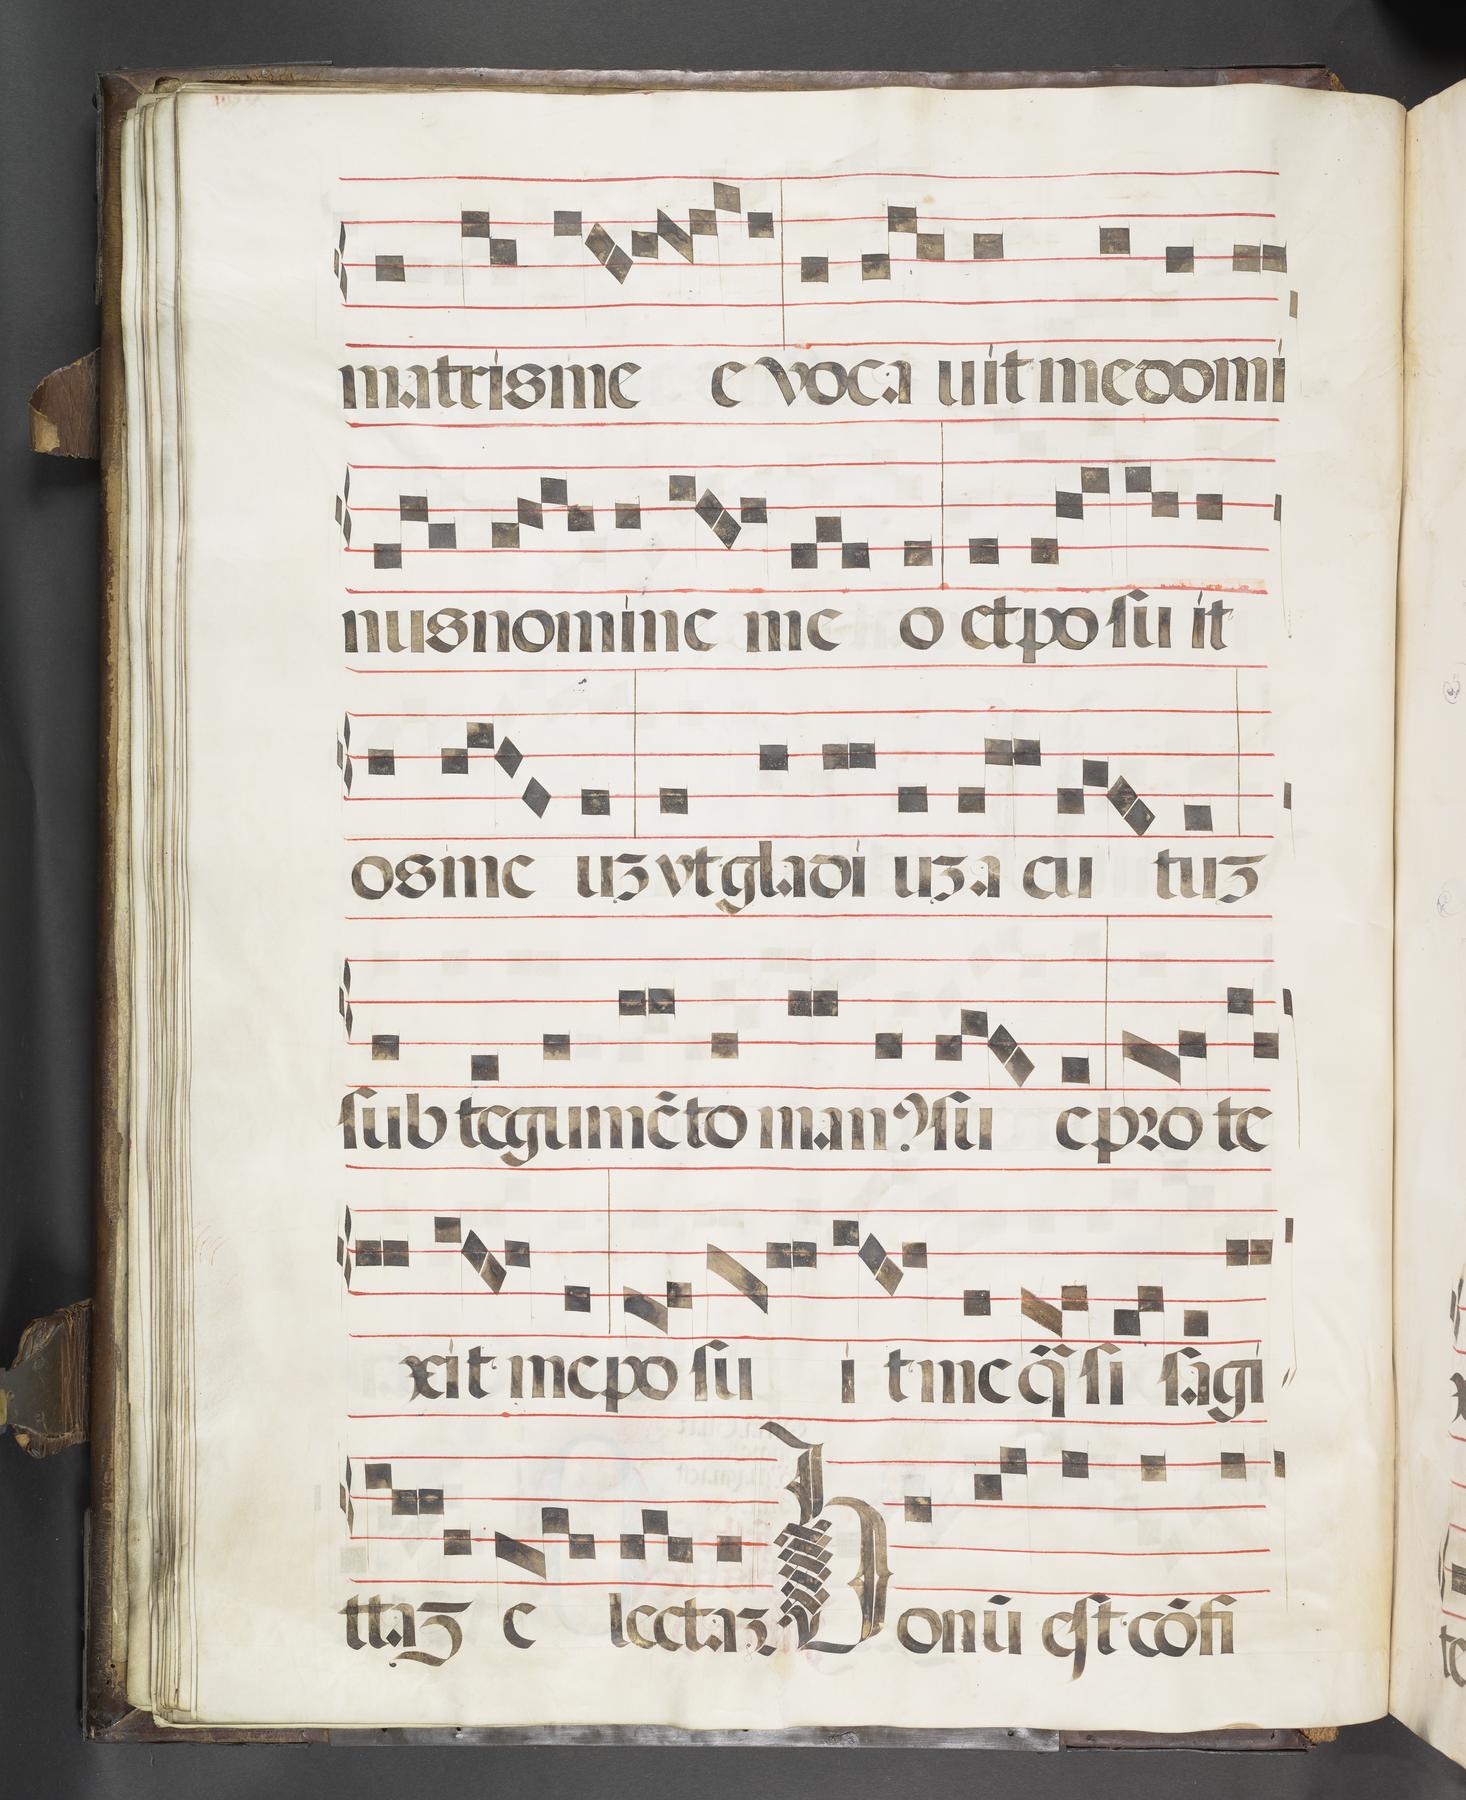 matrisme e voca uit me domi
nus nomine me o et posu it
os me uʒ vt gladi uʒ a cu tuʒ
sub tegumēto manꝰ su e pro te
xit me po su i t me q̃ si sagi
ttaʒ e lectaʒ Bonū est cōfi